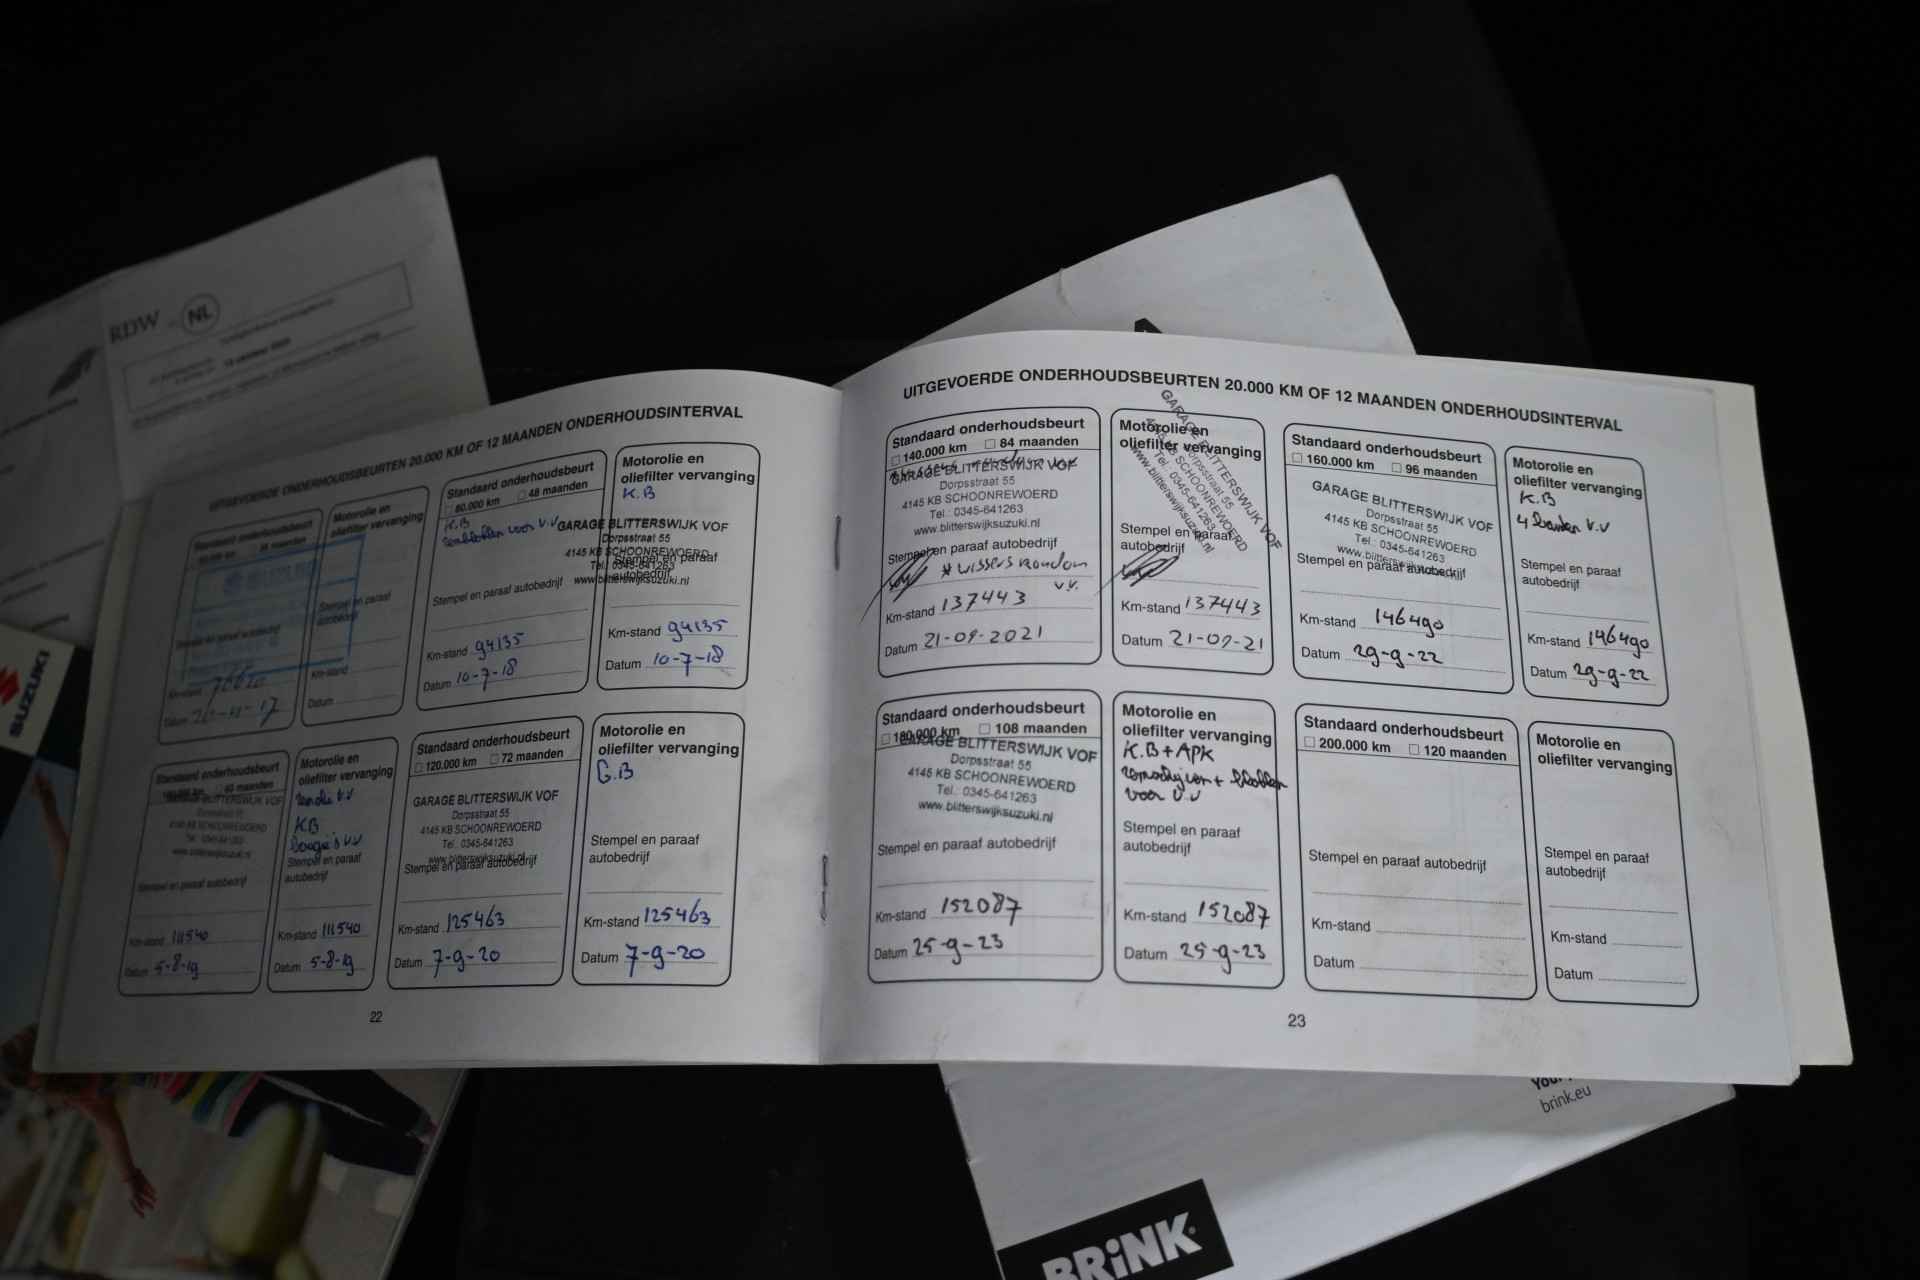 RDW
NL
SUZUKI
UITGEVOERDE ONDERHOUDSBEURTEN 20.000 KM OF 12 MAANDEN ONDERHOUDSINTERVAL
Standaard onderhoudsbeurt
maanden
Stempel en paraaf autobedrijf
Km-stand
Datum
Motorolie en
oliefilter vervanging
Stempel en paraaf
autobedrijf
Km-stand
Datum
Standaard onderhoudsbeurt
80.000 km 48 maanden
K.B
voor v.v
GARAGE BLITTERSWIJK VOF
Dorpsstraat 55
4145 KB SCHOONREWOERD
Tel.: 0345-641263
www.blitterswijksuzuki.nl
Stempel en paraaf autobedrijf
Km-stand 94135
Datum 10-7-18
Motorolie en
oliefilter vervanging
K.B
Stempel en paraaf
autobedrijf
Km-stand 94135
Datum 10-7-18
Standaard onderhoudsbeurt
100.000 km 60 maanden
4145 KB SCHOONREWOERD
Tel.: 0345-641263
www.blitterswijksuzuki.nl
Stempel en paraaf autobedrijf
Km-stand 111540
Datum 5-8-19
Motorolie en
oliefilter vervanging
v.v
KB
Bougies v.v
Stempel en paraaf
autobedrijf
Km-stand 111540
Datum 5-8-19
Standaard onderhoudsbeurt
120.000 km 72 maanden
GARAGE BLITTERSWIJK VOF
Dorpsstraat 55
4145 KB SCHOONREWOERD
Tel.: 0345-641263
www.blitterswijksuzuki.nl
Stempel en paraaf autobedrijf
Km-stand 125463
Datum 7-9-20
Motorolie en
oliefilter vervanging
G.B
Stempel en paraaf
autobedrijf
Km-stand 125463
Datum 7-9-20
22
UITGEVOERDE ONDERHOUDSBEURTEN 20.000 KM OF 12 MAANDEN ONDERHOUDSINTERVAL
Standaard onderhoudsbeurt
140.000 km 84 maanden
GARAGE BLITTERSWIJK VOF
Dorpsstraat 55
4145 KB SCHOONREWOERD
Tel.: 0345-641263
www.blitterswijksuzuki.nl
Stempel en paraaf autobedrijf
* wissers rondom
v.v.
Km-stand 137443
Datum 21-09-2021
Motorolie en
oliefilter vervanging
GARAGE BLITTERSWIJK VOF
Dorpsstraat 55
4145 KB SCHOONREWOERD
Tel.: 0345-641263
www.blitterswijksuzuki.nl
Stempel en paraaf
autobedrijf
Km-stand 137443
Datum 21-09-21
Standaard onderhoudsbeurt
160.000 km 96 maanden
GARAGE BLITTERSWIJK VOF
Dorpsstraat 55
4145 KB SCHOONREWOERD
Tel.: 0345-641263
www.blitterswijksuzuki.nl
Stempel en paraaf autobedrijf
Km-stand 146490
Datum 29-9-22
Motorolie en
oliefilter vervanging
K.B
4 banden v.v
Stempel en paraaf
autobedrijf
Km-stand 146490
Datum 29-9-22
Standaard onderhoudsbeurt
180.000 km 108 maanden
GARAGE BLITTERSWIJK VOF
Dorpsstraat 55
4145 KB SCHOONREWOERD
Tel.: 0345-641263
www.blitterswijksuzuki.nl
Stempel en paraaf autobedrijf
Km-stand 152087
Datum 25-9-23
Motorolie en
oliefilter vervanging
K.B + APK
remschijven + blokken
voor v.v
Stempel en paraaf
autobedrijf
Km-stand 152087
Datum 25-9-23
Standaard onderhoudsbeurt
200.000 km 120 maanden
Stempel en paraaf autobedrijf
Km-stand
Datum
Motorolie en
oliefilter vervanging
Stempel en paraaf
autobedrijf
Km-stand
Datum
23
brink.eu
BRINK